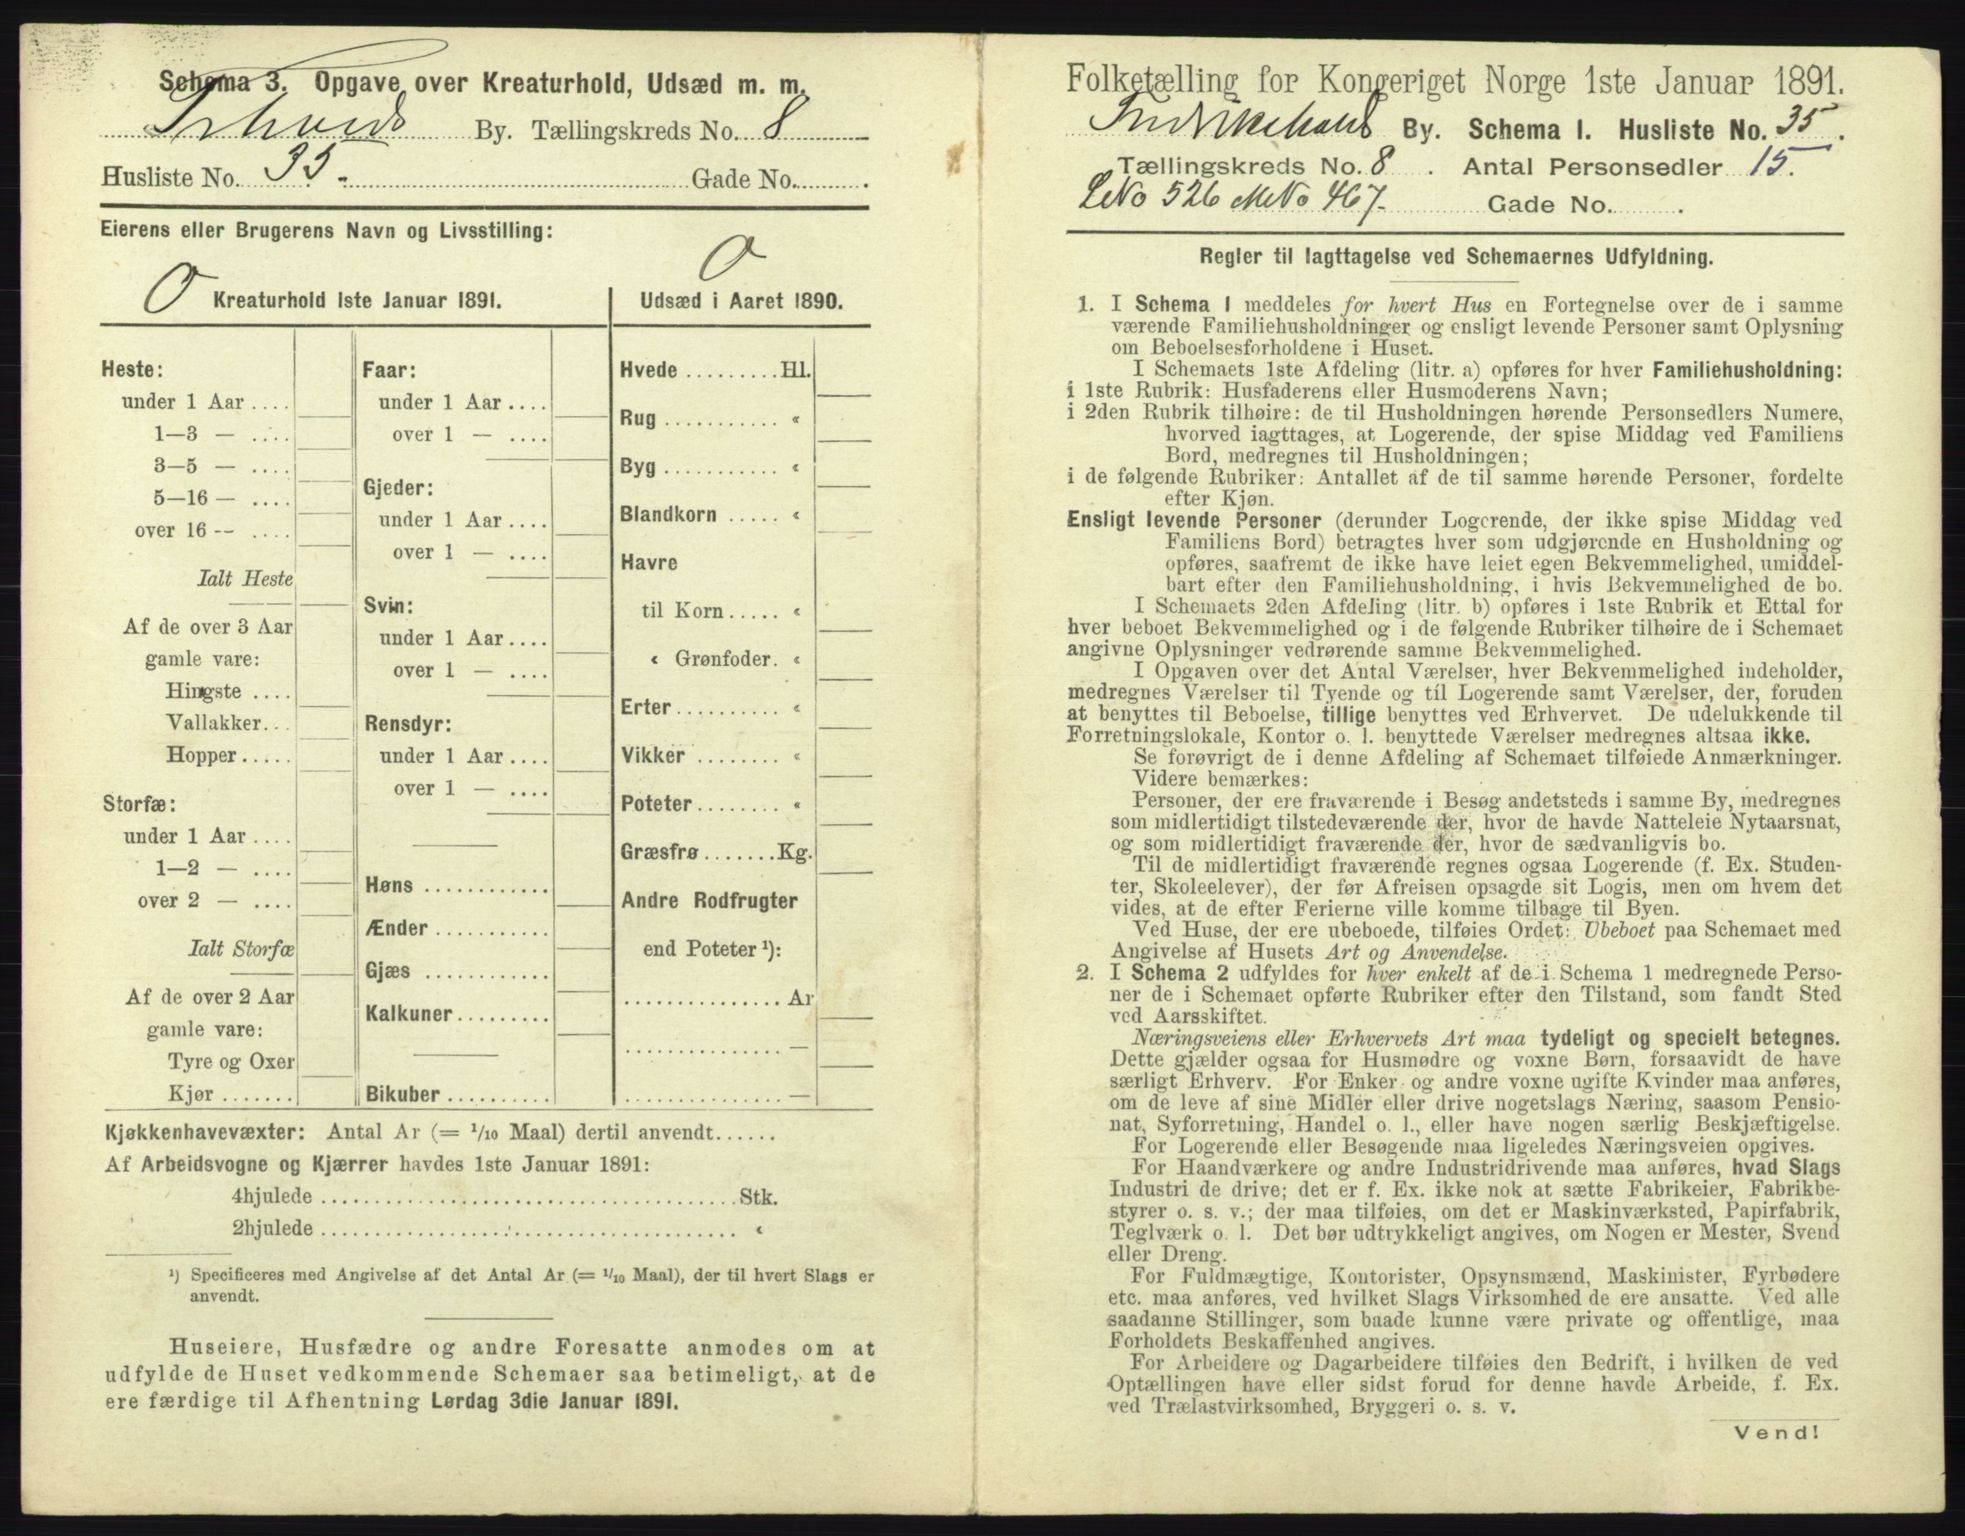 Schema 3. Opgave over Kreaturhold, Udsæd m. m.
Frhald By. Tællingskreds No. 8
Husliste No. 35. Gade No.
Eierens eller Brugerens Navn og Livsstilling:
O
O
Kreaturhold 1ste Januar 1891.
Heste:
under 1 Aar ....
1—3 — ....
3—5 — ....
5—16 — ....
over 16 -- ....
Ialt Heste
Af de over 3 Aar
gamle vare:
Hingste ....
Vallakker...
Hopper.....
Storfæ:
under 1 Aar ....
1—2 — ....
over 2 — ....
Ialt Storfæ
Af de over 2 Aar
gamle vare:
Tyre og Oxer
Kjør .......
Faar:
under 1 Aar ....
over 1 — ....
Gjeder:
under 1 Aar ....
over 1 — ....
Svin:
under 1 Aar ....
over 1 — ....
Rensdyr:
under 1 Aar ....
over 1 — ....
Høns ............
Ænder ...........
Gjæs ............
Kalkuner.........
Bikuber ..........
Udsæd i Aaret 1890.
Hvede .........Hl.
Rug ........... «
Byg ........... «
Blandkorn ..... «
Havre
til Korn ..... «
« Grønfoder. «
Erter.......... «
Vikker ........ «
Poteter........ «
Græsfrø.......Kg.
Andre Rodfrugter
end Poteter ¹):
............... Ar
............... —
............... —
Kjøkkenhavevæxter: Antal Ar (= 1/10 Maal) dertil anvendt......
Af Arbeidsvogne og Kjærrer havdes 1ste Januar 1891:
4hjulede ........................................Stk.
2hjulede ........................................ «
¹) Specificeres med Angivelse af det Antal Ar (= 1/10 Maal), der til hvert Slags er
anvendt.
Huseiere, Husfædre og andre Foresatte anmodes om at
udfylde de Huset vedkommende Schemaer saa betimeligt, at de
ere færdige til Afhentning Lørdag 3die Januar 1891.
Folketælling for Kongeriget Norge 1ste Januar 1891.
Fredrikshald By. Schema 1. Husliste No. 35.
Tællingskreds No. 8. Antal Personsedler 15.
LNo 526 MNo 467. Gade No. .
Regler til Iagttagelse ved Schemaernes Udfyldning.
1. I Schema 1 meddeles for hvert Hus en Fortegnelse over de i samme
værende Familiehusholdninger og ensligt levende Personer samt Oplysning
om Beboelsesforholdene i Huset.
I Schemaets 1ste Afdeling (litr. a) opføres for hver Familiehusholdning:
i 1ste Rubrik: Husfaderens eller Husmoderens Navn;
i 2den Rubrik tilhøire: de til Husholdningen hørende Personsedlers Numere,
hvorved iagttages, at Logerende, der spise Middag ved Familiens
Bord, medregnes til Husholdningen;
i de følgende Rubriker: Antallet af de til samme hørende Personer, fordelte
efter Kjøn.
Ensligt levende Personer (derunder Logerende, der ikke spise Middag ved
Familiens Bord) betragtes hver som udgjørende en Husholdning og
opføres, saafremt de ikke have leiet egen Bekvemmelighed, umiddel-
bart efter den Familiehusholdning, i hvis Bekvemmelighed de bo.
I Schemaets 2den Afdeling (litr. b) opføres i 1ste Rubrik et Ettal for
hver beboet Bekvemmelighed og i de følgende Rubriker tilhøire de i Schemaet
angivne Oplysninger vedrørende samme Bekvemmelighed.
I Opgaven over det Antal Værelser, hver Bekvemmelighed indeholder,
medregnes Værelser til Tyende og til Logerende samt Værelser, der, foruden
at benyttes til Beboelse, tillige benyttes ved Erhvervet. De udelukkende til
Forretningslokale, Kontor o. l. benyttede Værelser medregnes altsaa ikke.
Se forøvrigt de i denne Afdeling af Schemaet tilføiede Anmærkninger.
Videre bemærkes:
Personer, der ere fraværende i Besøg andetsteds i samme By, medregnes
som midlertidigt tilstedeværende der, hvor de havde Natteleie Nytaarsnat,
og som midlertidigt fraværende der, hvor de sædvanligvis bo.
Til de midlertidigt fraværende regnes ogsaa Logerende (f. Ex. Studen-
ter, Skoleelever), der før Afreisen opsagde sit Logis, men om hvem det
vides, at de efter Ferierne ville komme tilbage til Byen.
Ved Huse, der ere ubeboede, tilføies Ordet: Ubeboet paa Schemaet med
Angivelse af Husets Art og Anvendelse.
2. I Schema 2 udfyldes for hver enkelt af de i Schema 1 medregnede Perso-
ner de i Schemaet opførte Rubriker efter den Tilstand, som fandt Sted
ved Aarsskiftet.
Næringsveiens eller Erhvervets Art maa tydeligt og specielt betegnes.
Dette gjælder ogsaa for Husmødre og voxne Børn, forsaavidt de have
særligt Erhverv. For Enker og andre voxne ugifte Kvinder maa anføres,
om de leve af sine Midler eller drive nogetslags Næring, saasom Pensio-
nat, Syforretning, Handel o. l., eller have nogen særlig Beskjæftigelse.
For Logerende eller Besøgende maa ligeledes Næringsveien opgives.
For Haandværkere og andre Industridrivende maa anføres, hvad Slags
Industri de drive; det er f. Ex. ikke nok at sætte Fabrikeier, Fabrikbe-
styrer o. s. v.; der maa tilføies, om det er Maskinværksted, Papirfabrik,
Teglværk o. l. Det bør udtrykkeligt angives, om Nogen er Mester, Svend
eller Dreng.
For Fuldmægtige, Kontorister, Opsynsmænd, Maskinister, Fyrbødere
etc. maa anføres, ved hvilket Slags Virksomhed de ere ansatte. Ved alle
saadanne Stillinger, som baade kunne være private og offentlige, maa
Forholdets Beskaffenhed angives.
For Arbeidere og Dagarbeidere tilføies den Bedrift, i hvilken de ved
Optællingen have eller sidst forud for denne havde Arbeide, f. Ex.
ved Trælastvirksomhed, Bryggeri o. s. v.
Vend!